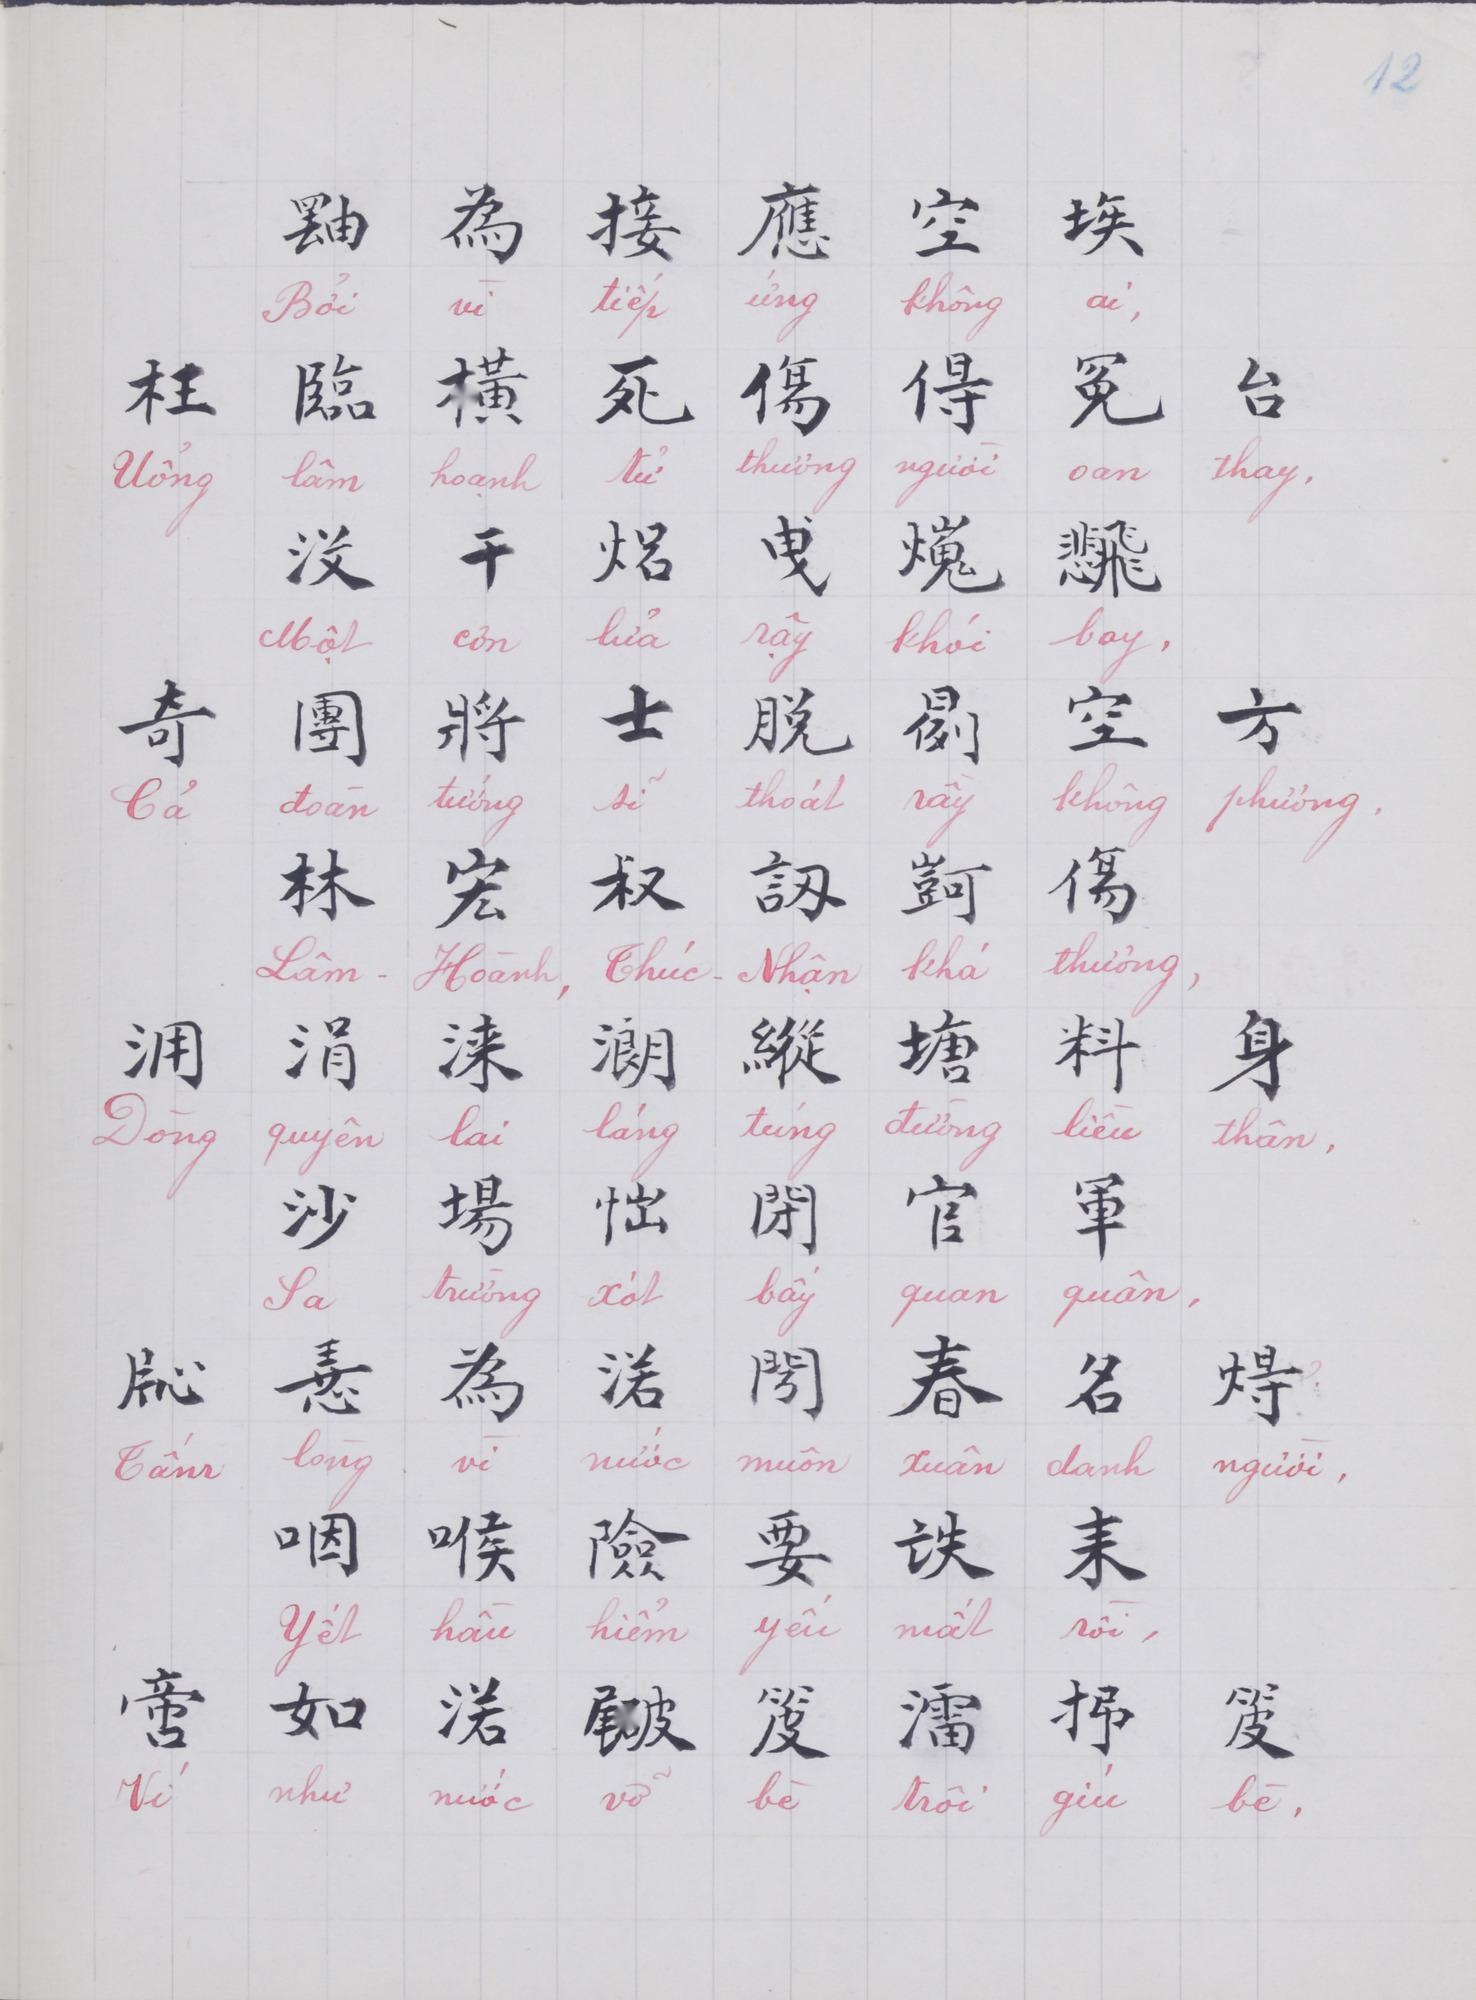 12
𪽝 為 接 應 空 埃
Bởi vì tiếp ứng không ai,
枉 臨 橫 死 傷 得 冤 台
Uổng lâm hoạnh tử thương người oan thay,
没 干 焒 曳 𤐡
Một cơn lửa rậy khói bay,
奇 團 將 士 脱 空 方
Cả đoàn tướng sĩ thoát rầy không phương,
林 宏 叔 訒 傷
Lâm - Hoành, Thúc - Nhận khá thương,
泂 涓 淶 縱 塘 料 身
Dòng quyên lai láng túng đường liều thân,
沙 場 怞 閉 官 軍
Sa trường xót bấy quan quân,
為 渃 閍 春 名 㝵
Tấm lòng vì nước muôn xuân danh người,
咽 喉 險 要 䟡 耒
Yết hầu hiểm yếu mất rồi,
如 渃
Ví như nước vỡ bè trôi giú bè,